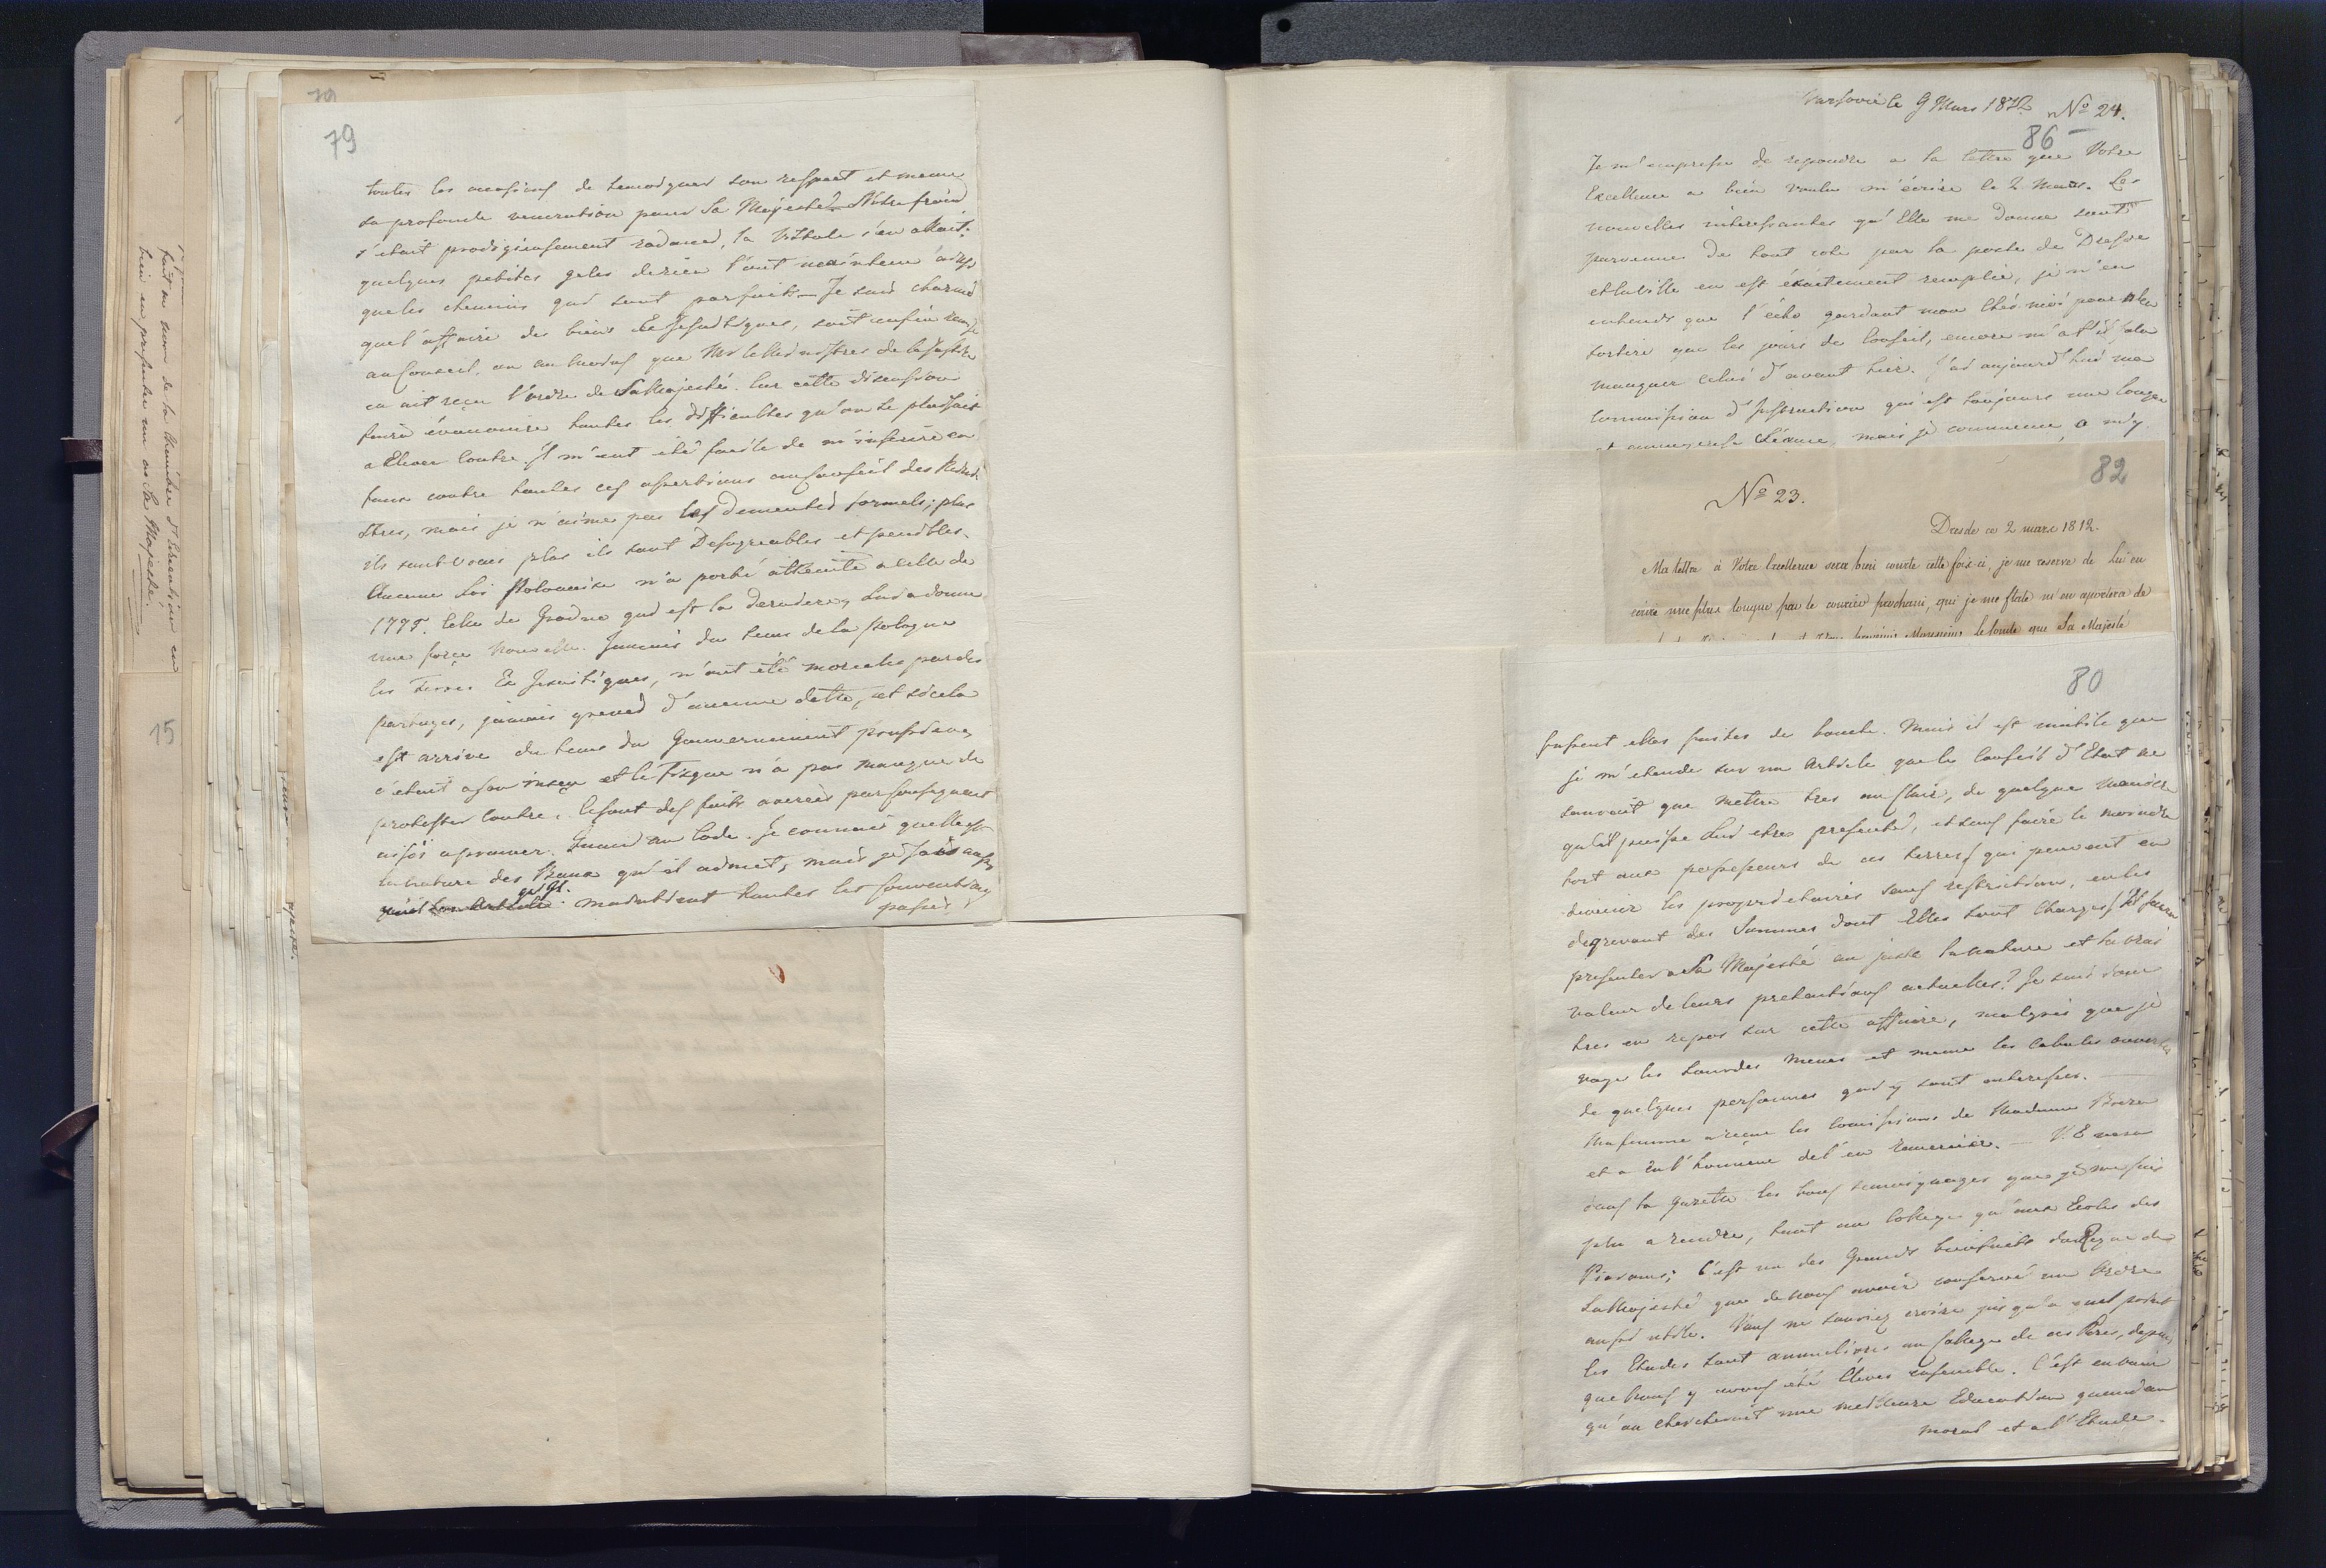 79
79
toutes les occasions de temoigner son respect et meme
sa profonde veneration pour Sa Majesté. Notre froid
s'etait prodigieusement radouci, la Vistule s'en allait.
quelques petites gelés derien l'ont maintenu ainsi
que les chemins qui sont parfaits — Je suis charmé
que l'affaire des biens Ex Jesuitiques, soit enfin
au Conseil, ou au moins que Mr le Ministres de la Justice
en ait reçu l'ordre de Sa Majesté. Sur cette discussion
faire évanouire toutes les difficultes qu'on se plaisait
a Elever Contre. Il m'eut été facile de m'inscrire en
faux contre toutes ces assertions au Conseil des Minis-
tres, mais je n'aime pas les dementis formels; plus
ils sont vrais plus ils sont Desagreables et penibles.
Aucune Loi Polonaise n'a porté attteinte a celle de
1775. Celle de Grodno qui est la derniere, lui a donné
une force Nouvelle. Jamais du tems de la Pologne
les Terres Ex Jesuitiques, n'ont été morcelés par des
partages, jamais grevés d'aucune dette, et si cela
est arrivé du tems du Gouvernement prussien,
c'etait a son insçu et le Fisque n'a pas manqué de
protester Contre. Ce sont des faits averés par consequent
aisés a prouver. Quand au Code. Je connais quelle est
la nature des Biens qu'il admet, mais je sais aussi
qu'il
maintient toutes les Conventions
passés,
15
fait au nom de la Chambre d'Education en
bien en presenter un au Sa Majesté.
Varsovie le 9 Mars 1812 No 24.
86
Je m'empresse de repondre a la lettre que Votre
Excellence a bien voulu m'écrire le 2 Mars. Les
nouvelles interessantes qu'Elle me donne sont
parvenues de tout coté par la poste de Dresde
et la ville en est éxactement remplie, je n'en
entends que l'écho gardant mon chés moi pour ne
sortire que les jours de Conseil, encore m'a t'il falu
manquer celui d'avant hier. J'ai aujourd'hui ma
Commission d'Instruction qui est toujours une longue
et ennuyeuse Séance, mais je commence a m'y
82
No 23.
Dresde ce 2 mars 1812.
Ma lettre à Votre Excellence sera bien courte cette fois-ci, je me reserve de Lui en
écrire une plus longue par le courier prochain, qui je me flate m'en aportera de
le Comte que Sa Majesté
80
fussent elles faites de bouche. Mais il est inutile que
je m'etende sur un Article que le Conseil d'Etat ne
sauroit que mettre tres au Clair, de quelque maniere
qu'il puisse lui etre presenté, et sans faire le moindre
tort aux possesseurs de ces terres qui peuvent en
devenir les proprietaires sans restriction, en les
degrevant des Sommes dont Elles sont Chargés
presenter a Sa Majesté au juste la nature et la vrai
valeur de leurs pretentions actuelles? Je suis donc
tres en repos sur cette affaire, malgrés que je
voye les sourdes menés et meme les Cabales ouvertes
de quelques personnes qui y sont interessés.
Ma femme a reçu les Comissions de Madame Breza
et a eu l'honneur del'en remercier. — V. E. verra
dans la Gazette les bons temoignages que je me suis
plu a rendre, tant au College qu'aux Ecoles des
Piarons; C'est un des Grands bienfaits du Regne de
Sa Majesté que de nous avoir conservé un Ordre
aussi utile. Vous ne sauriez croire jusqu'a quel point
les Etudes sont ameliorés au College de ces Peres, depuis
que nous y avons été Elevés ensemble. C'est envain
qu'on chercheroit une meilleure Education quand au
moral et a l'Etude.